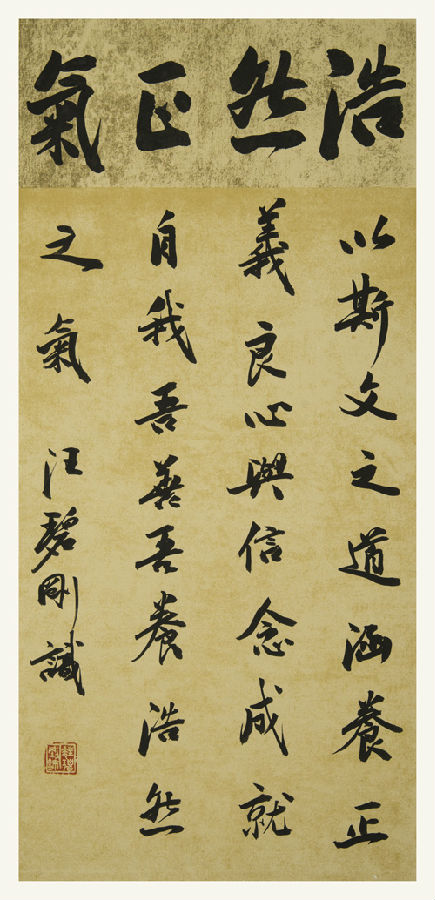 浩然正氣
以斯文之道涵養正
義良心與信念成就
自我吾善吾養浩然
之氣 汪碧剛識